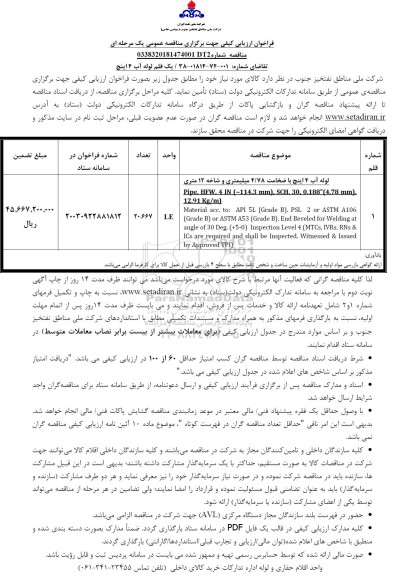 فراخوان ارزیابی کیفی جهت برگزاری مناقصه عمومی یک مرحله ای
مناقصه شماره 0338320181474001 DT2
تقاضای شماره: ۰۰۱-۷۴-۰۱۸۱۴-۳۸ / یک قلم لوله آب ۴ اینچ
شرکت ملی مناطق نفتخیز جنوب در نظر دارد کالای مورد نیاز خود را مطابق جدول زیر بصورت فراخوان ارزیابی کیفی جهت برگزاری
مناقصه‌ی عمومی از طریق سامانه تدارکات الکترونیکی دولت (ستاد) تأمین نماید. کلیه مراحل برگزاری مناقصه، از دریافت اسناد مناقصه
تا ارائه پیشنهاد مناقصه گران و بازگشایی پاکات از طریق درگاه سامانه تدارکات الکترونیکی دولت (ستاد) به آدرس
www.setadiran.ir انجام خواهد شد و لازم است مناقصه گران در صورت عدم عضویت قبلی، مراحل ثبت نام در سایت مذکور و
دریافت گواهی امضای الکترونیکی را جهت شرکت در مناقصه محقق سازند.
شماره قلم | موضوع مناقصه | واحد | تعداد | شماره فراخوان در سامانه ستاد | مبلغ تضمین
۱ | لوله آب ۴ اینچ با ضخامت ۴/۷۸ میلیمتری و شاخه ۱۲ متری | LE | ۲۰.۶۶۷ | ۲۰۰۳۰۹۲۲۸۸۱۸۱۲ | ۴۵,۶۶۷,۲۰۰,۰۰۰ ریال
Pipe, HFW, 4 IN (~114.3 mm), SCH. 30, 0.188"(4.78 mm),
12.91 Kg/m)
Material acc. to: API 5L (Grade B), PSL 2 or ASTM A106
(Grade B) or ASTM A53 (Grade B). End Beveled for Welding at
angle of 30 Deg. (+5-0) Inspection Level 4 (MTCs, IVRs, RNs &
ICs are required and shall be Inspected, Witnessed & Issued
by Approved TPI)
یادآوری:
ارائه گواهی بازرسی مواد اولیه و آزمایشات حین ساخت و شاخه ثالث مطابق با سطح ۴ بازرسی قبل از حمل کالا برای کارفرما الزامی می‌باشد
لذا کلیه مناقصه گرانی که فعالیت آنها مرتبط با شرح کالای مورد درخواست می‌باشد می توانند ظرف مدت ۱۴ روز از چاپ آگهی
نوبت دوم با مراجعه به سامانه تدارک الکترونیکی دولت(ستاد) به نشانی www.setadiran.ir نسبت به چاپ و تکمیل فرمهای
شماره ۱و۲ شامل تعهدنامه ارائه کالا و خدمات پس از فروش، اقدام نمایند و می بایست ظرف مدت ۱۴روز پس از اتمام مهلت
اولیه، نسبت به بارگذاری فرمهای مذکور به همراه مدارک و مستندات تکمیلی مطابق با استانداردهای شرکت ملی مناطق نفتخیز
جنوب و بر اساس موارد مندرج در جدول ارزیابی کیفی (برای معاملات بیشتر از بیست برابر نصاب معاملات متوسط) در
سامانه ستاد اقدام نمایند.
• شرط دریافت اسناد مناقصه توسط مناقصه گران کسب امتیاز حداقل ۶۰ از ۱۰۰ در ارزیابی کیفی می باشد. "دریافت امتیاز
مذکور بر اساس شاخص های اعلام شده در جدول ارزیابی کیفی می باشد."
• اسناد و مدارک مناقصه پس از برگزاری فرآیند ارزیابی کیفی و ارسال دعوتنامه، از طریق سامانه ستاد برای مناقصه‌گران واجد
شرایط ارسال خواهد شد.
• با وصول حداقل یک فقره پیشنهاد فنی/ مالی معتبر در موعد زمانبندی مناقصه گشایش پاکات فنی/ مالی انجام خواهد شد.
بدیهی است این امر نافی "حداقل تعداد مناقصه گران در فهرست کوتاه"، موضوع ماده ۱۰ آئین نامه ارزیابی کیفی مناقصه گران
نمی باشد.
• کلیه سازندگان داخلی و تامین‌کنندگان مجاز به شرکت در مناقصه می‌باشند و کلیه سازندگان داخلی اقلام کالا می‌توانند جهت
شرکت در مناقصات کالا به صورت مستقیم، حداکثر با یک سرمایه‌گذار مشارکت داشته باشند؛ بدیهی است در این قبیل مشارکت
ها، سازنده باید در مناقصه شرکت نموده و در صورت نیاز سرمایه‌گذار خود را نیز معرفی نماید و هر دو طرف مشارکت (سازنده و
سرمایه‌گذار) باید به عنوان تضامنی قبول مسئولیت نموده و قرارداد را امضا نمایند؛ ولی تضامین در هر مرحله از مناقصه می‌تواند
توسط یکی از اعضای مشارکت (سازنده یا سرمایه‌گذار) ارائه شود.
• حضور در فهرست بلند سازندگان مجاز دستگاه مرکزی (AVL) جهت شرکت در مناقصه الزامی می‌باشد.
• کلیه مدارک ارزیابی کیفی در قالب یک فایل PDF در سامانه ستاد بارگذاری گردد. ضمناً مدارک بصورت دسته بندی شده و
منطبق با شاخص های اعلام شده(توان مالی/ارزیابی و تجارب قبلی/استانداردها/گارانتی) بارگذاری گردند.
• صورت مالی ارائه شده که توسط حسابرس رسمی تهیه و ممهور شده می بایست در سامانه پردیس ثبت و قابل رؤیت باشد.
واحد اقلام حفاری و لوله اداره تدارکات خرید کالای داخلی (تلفن تماس ۲۳۴۵۵-۳۴۱-۰۶۱)